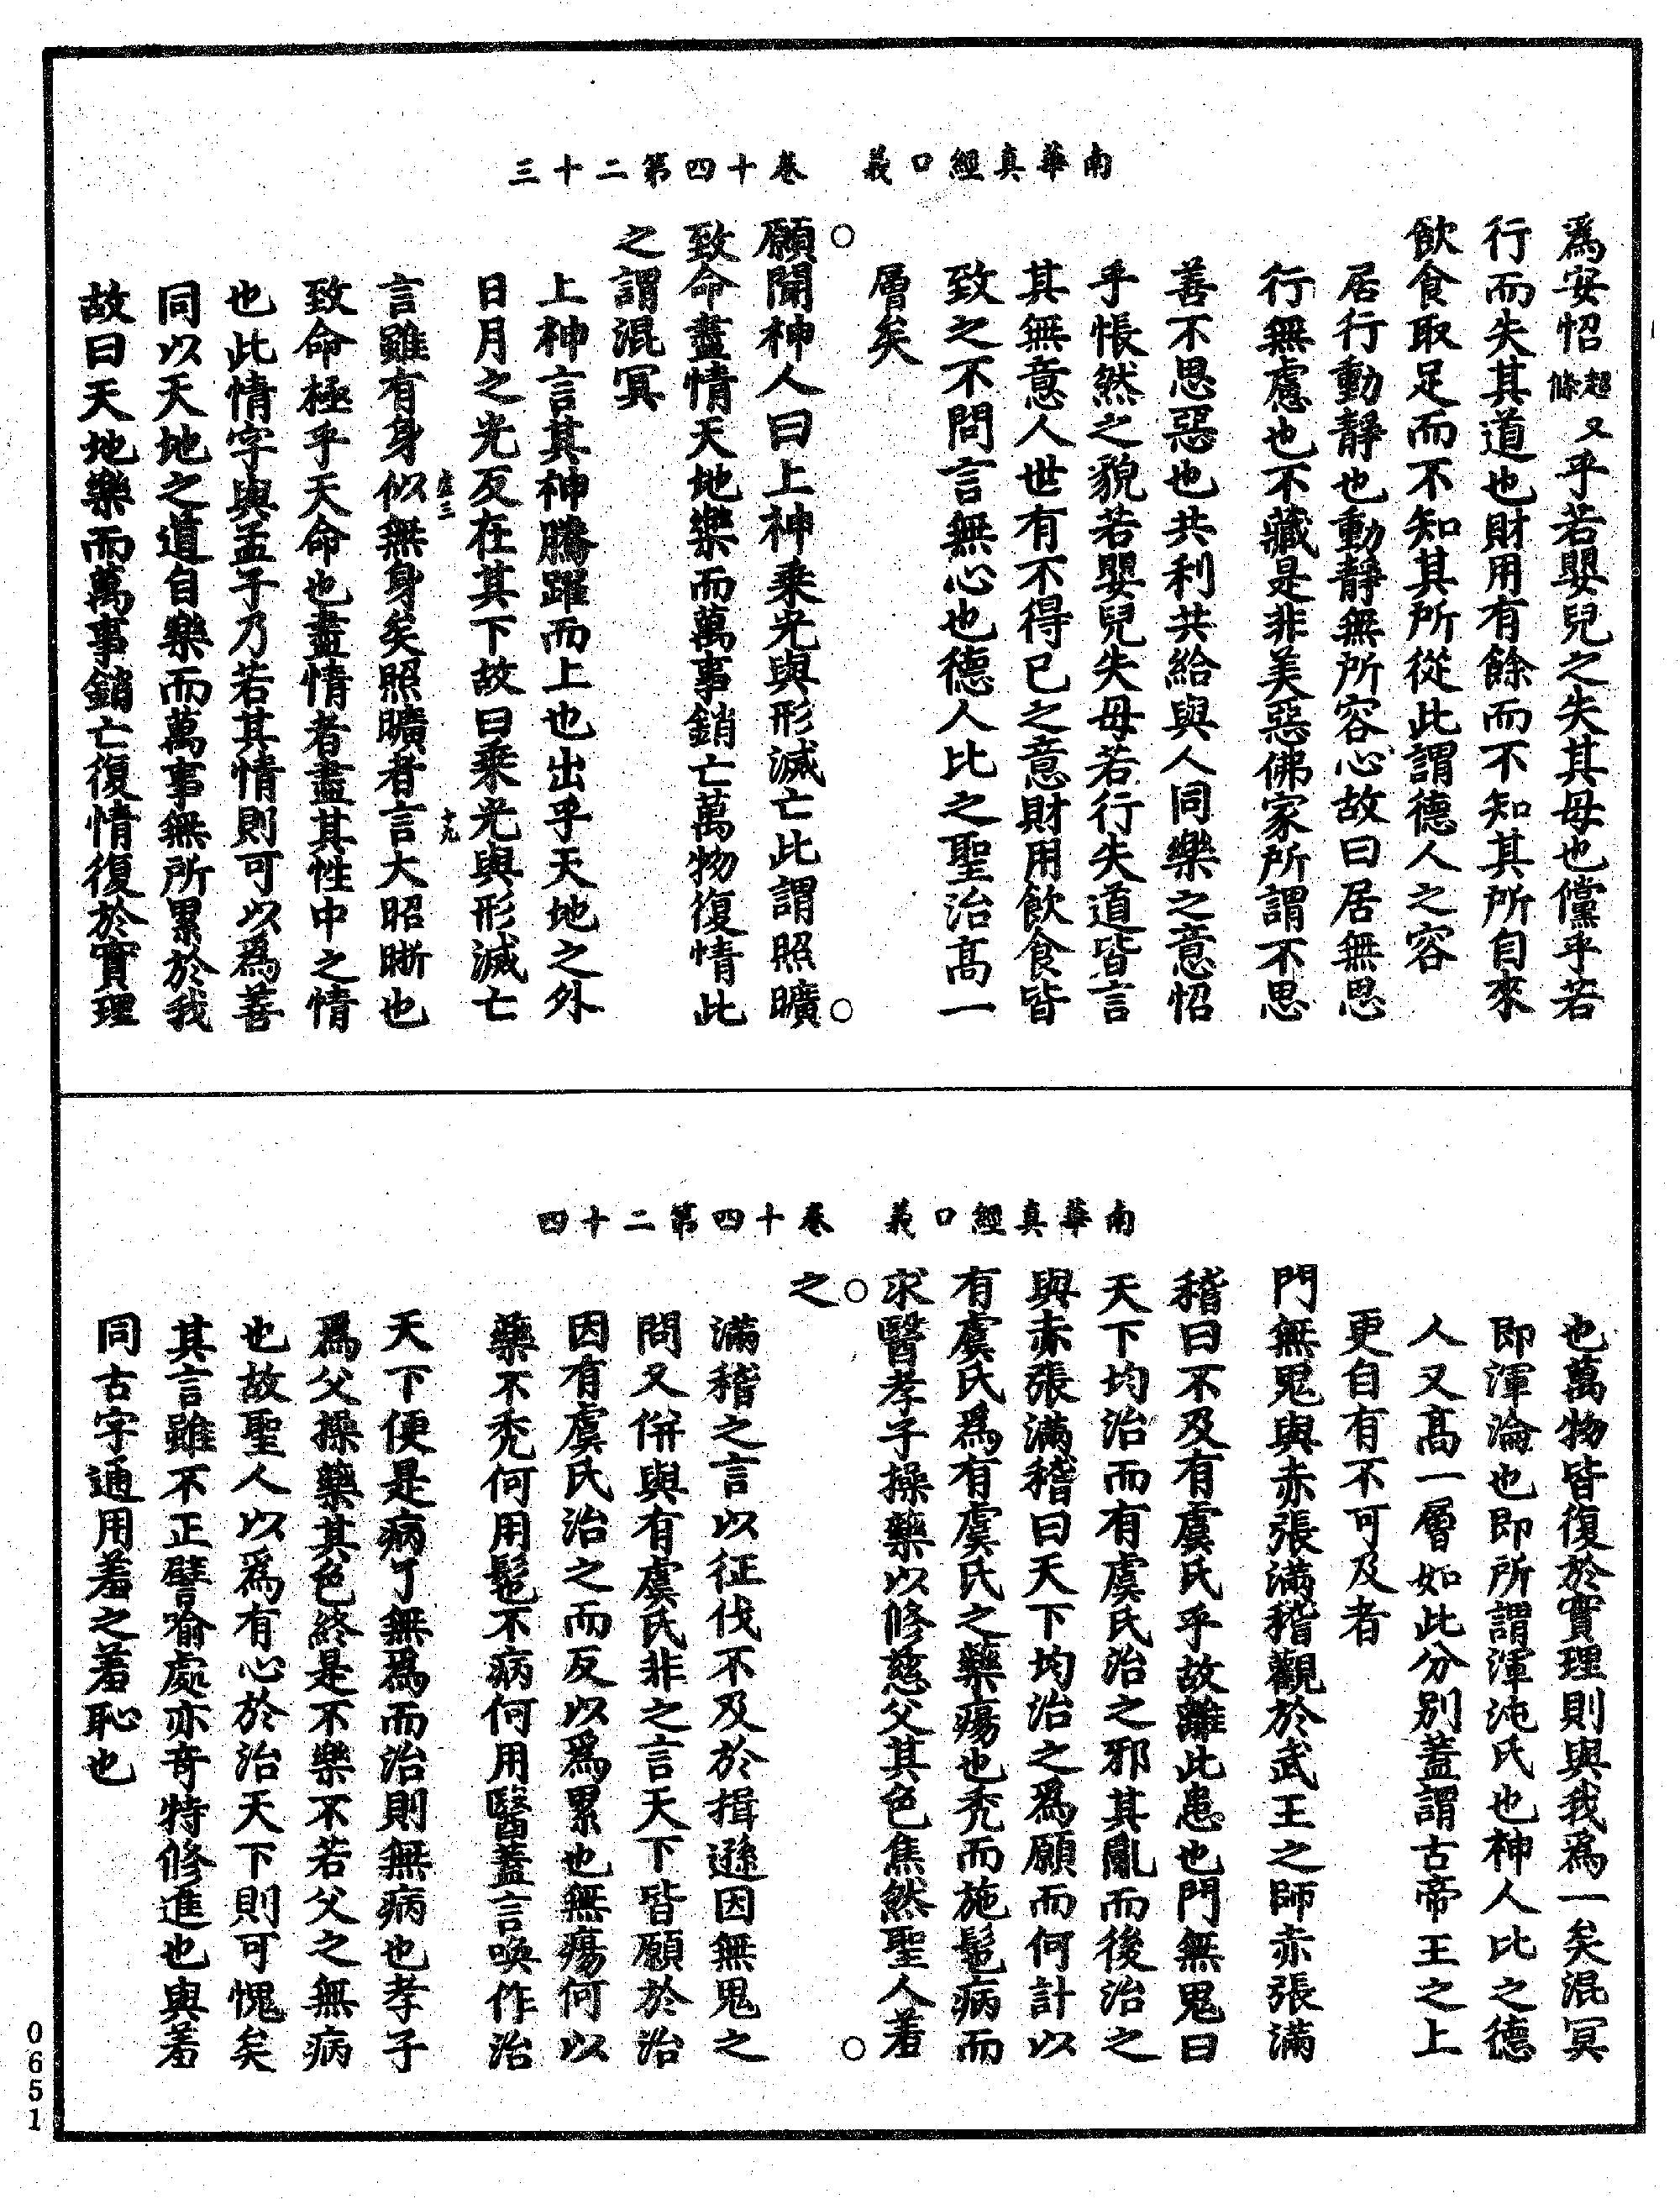 南華真經口義　卷十四第二十三
爲安怊超條又乎若嬰兒之失其母也儻乎若
行而失其道也財用有餘而不知其所自來
飲食取足而不知其所從此謂德人之容
居行動靜也動靜無所容心故曰居無思
行無慮也不藏是非美惡佛家所謂不思
善不思惡也共利共給與人同樂之意怊
乎悵然之貌若嬰兒失母若行失道皆言
其無意人世有不得已之意財用飲食皆
致之不問言無心也德人比之聖治高一
層矣
○
願聞神人曰上神乘光與形滅亡此謂照曠○
致命盡情天地樂而萬事銷亡萬物復情此
之謂混冥
上神言其神騰躍而上也出乎天地之外
日月之光反在其下故曰乘光與形滅亡
虛三　十九
言雖有身似無身矣照曠者言大昭晰也
致命極乎天命也盡情者盡其性中之情
也此情字與孟子乃若其情則可以爲善
同以天地之道自樂而萬事無所累於我
故曰天地樂而萬事銷亡復情復於實理
南華真經口義　卷十四第二十四
也萬物皆復於實理則與我爲一矣混冥
即渾淪也即所謂渾沌氏也神人比之德
人又高一層如此分别蓋謂古帝王之上
更自有不可及者
門無鬼與赤張滿稽觀於武王之師赤張滿
稽曰不及有虞氏乎故離此患也門無鬼曰
天下均治而有虞氏治之邪其亂而後治之
與赤張滿稽曰天下均治之爲願而何計以
有虞氏爲有虞氏之藥瘍也禿而施髢病而
求醫孝子操藥以修慈父其色焦然聖人羞
○　○
之
滿稽之言以征伐不及於揖遜因無鬼之
問又併與有虞氏非之言天下皆願於治
因有虞氏治之而反以爲累也無瘍何以
藥不禿何用髢不病何用醫蓋言喚作治
天下便是病了無爲而治則無病也孝子
爲父操藥其色終是不樂不若父之無病
也故聖人以爲有心於治天下則可愧矣
其言雖不正譬喻處亦奇特修進也與羞
同古字通用羞之羞恥也
0651